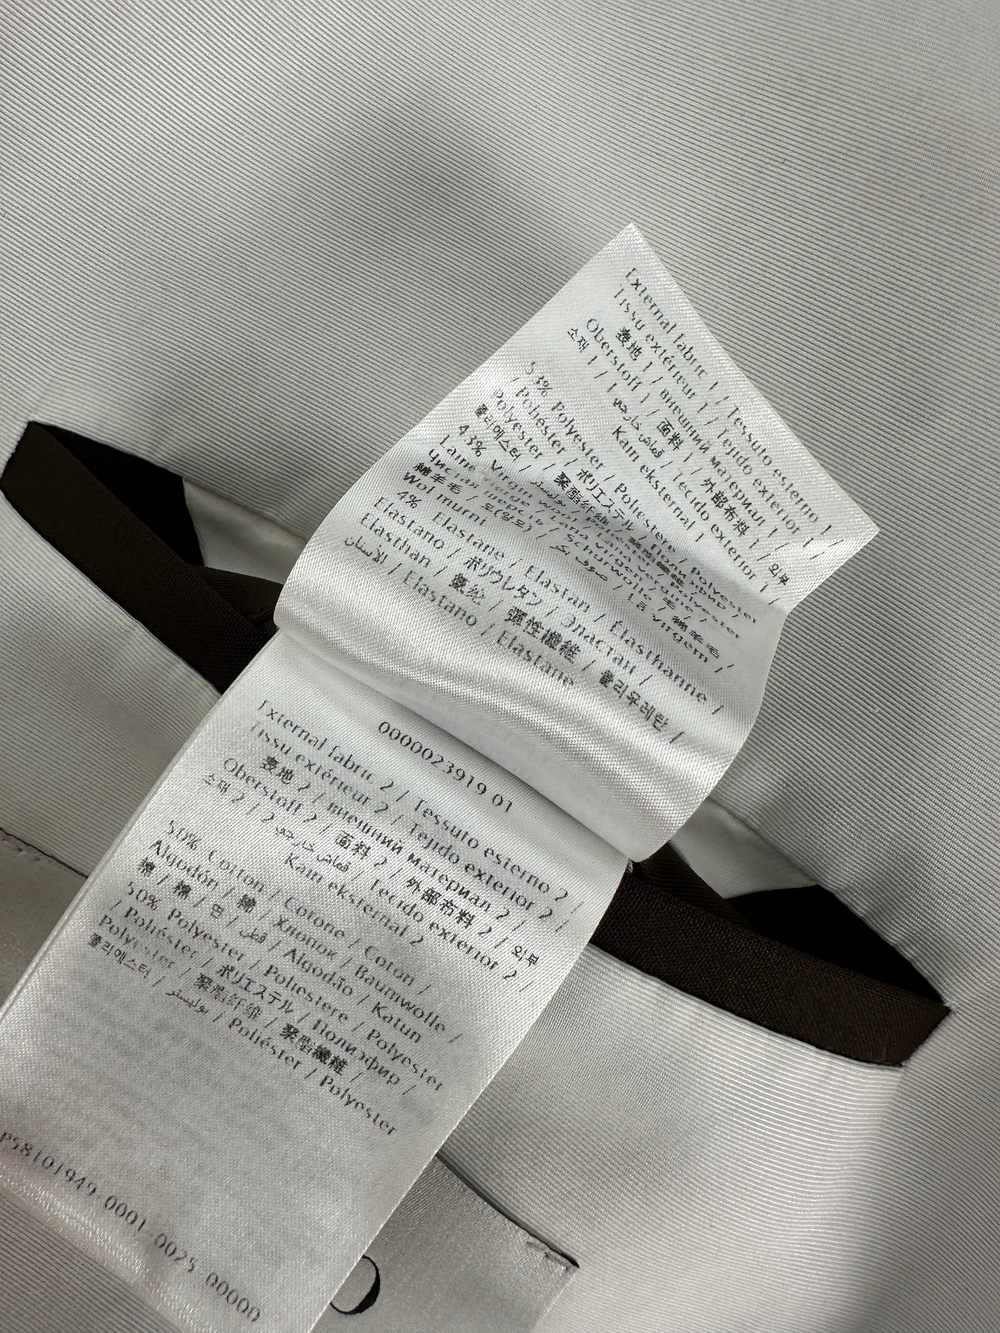 External fabric 1 / Tessuto esterno 1 /
Tissu extérieur 1 / Tejido exterior 1 /
表地 1 / внешний материал 1 /
Oberstoff 1 / 面料 1 / 外部布料 1 / 외부
소재 1 / قماش خارجي 1 / Tecido exterior 1 /
Kain eksternal 1
53% Polyester / Poliestere / Polyester
/ Poliéster / ポリエステル /
Polyester / 聚酯纤维 /
폴리에스터 /
43% Virgin wool /
Laine vierge /
Чистая шерсть / Schurwolle / 毛 / 綿羊毛 /
綿羊毛 / 모(양모) / صوف بكر / Lã virgem
Wol murni
4% Elastane / Elastan / Élasthanne /
Elastano / ポリウレタン / Эластан /
Elasthan / 氨纶 / 彈性纖維 / 폴리우레탄 /
الإلاستان / Elastano / Elastane
0000023919 01
External fabric 2 / Tessuto esterno 2 /
Tissu extérieur 2 / Tejido exterior 2 /
表地 2 / внешний материал 2 /
Oberstoff 2 / 面料 2 / 外部布料 2 / 외부
소재 2 / قماش خارجي 2 / Tecido exterior 2 /
Kain eksternal 2
50% Cotton / Cotone / Coton /
Algodón / 綿 / Хлопок / Baumwolle /
棉 / 棉 / 면 / قطن / Algodão / Katun
50% Polyester / Poliestere / Polyester
/ Poliéster / ポリエステル / Полиэфир /
Polyester / 聚酯纤维 / 聚酯纖維 /
폴리에스터 / بوليستر / Poliéster / Polyester
P58101949 0001 0025 00000